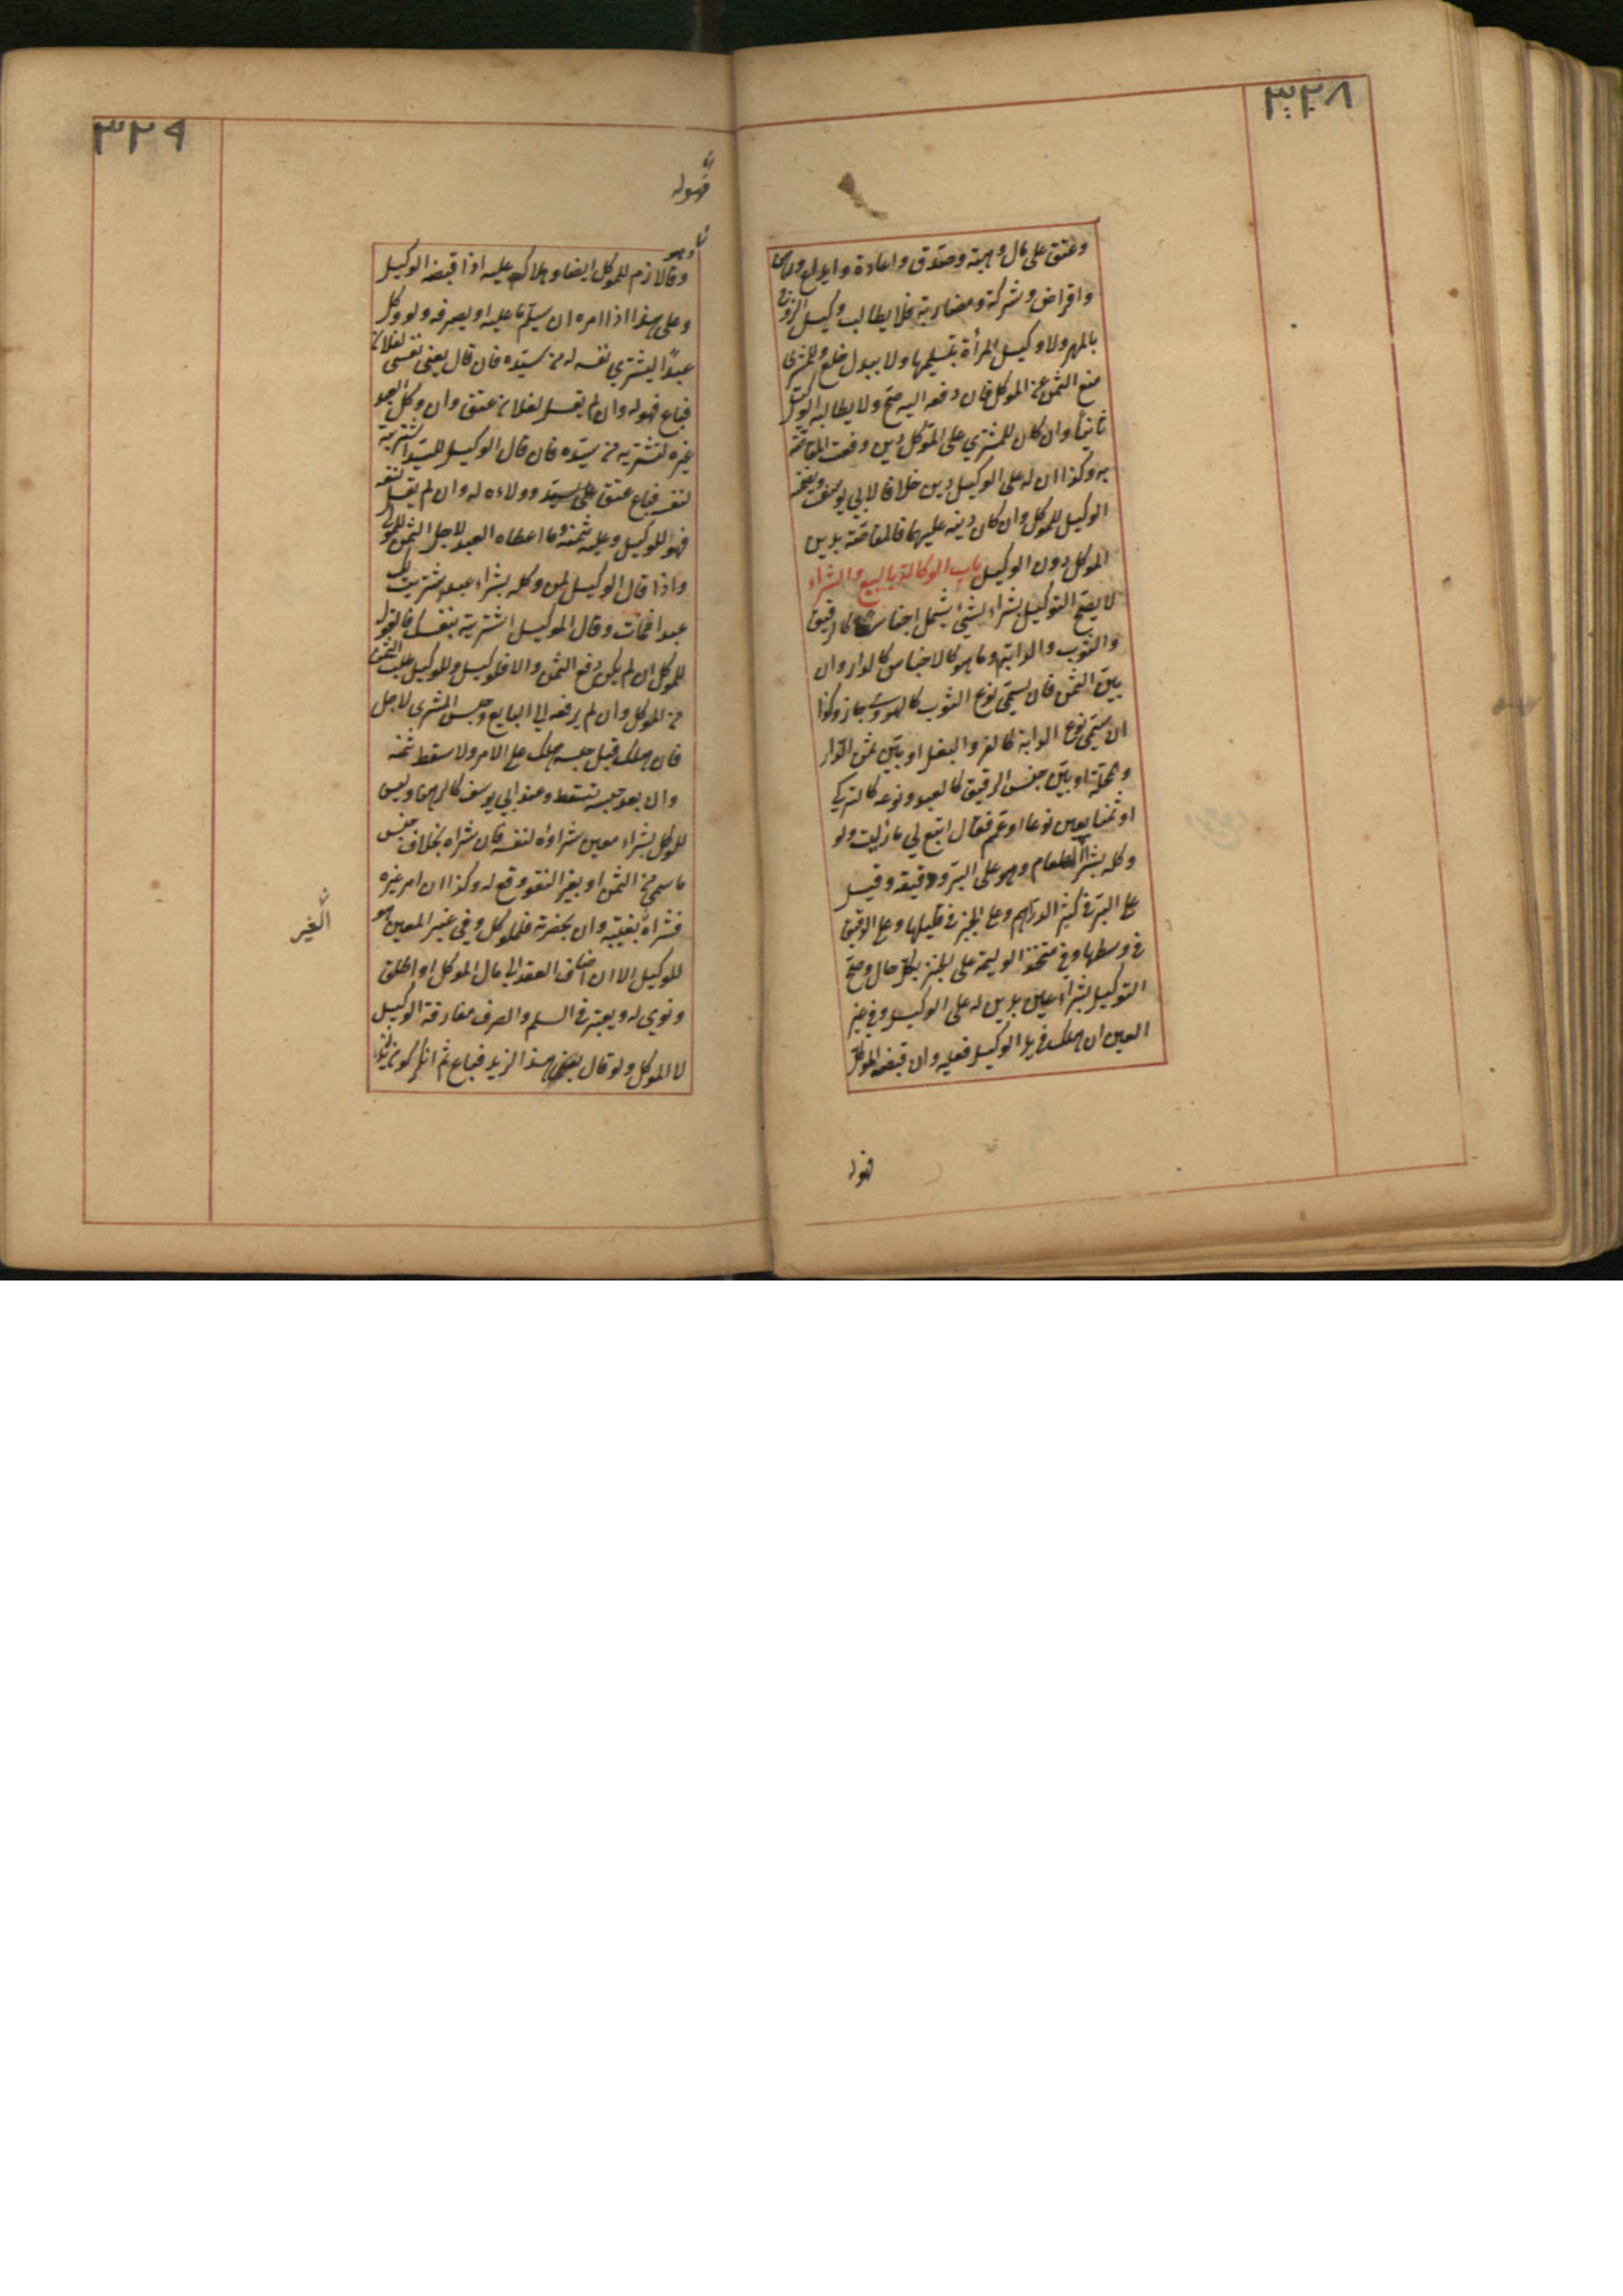 ٣٢٨
وعتق على مال وهبة وصدقة واعارة وايداع ورهن
واقراض وشركة ومضاربة فلا يطالب وكيل الزوج
بالمهر ولا وكيل المرأة بتسليمها ولا ببدل خلع وللمشترى
منع الثمن عن الموكل فان دفعه اليه صح ولا يطالبه الوكيل
ثانيا وان كان للمشتري على الموكل دين وقعت المقاصة
به وكذا ان له على الوكيل دين خلافا لابي يوسف ويضمنه
الوكيل للموكل وان كان دينه عليهما فالمقاصة بدين
الموكل دون الوكيل باب الوكالة بالبيع والشراء
لا يصح التوكيل بشراء شيء يشمل اجناسا كالرقيق
والثوب والدابة وما هو كالاجناس كالدار وان
بين الثمن فان سمى نوع الثوب كالهروى جاز وكذا
ان سمى نوع الدابة كالفرس والبغل او بين ثمن الدار
ومحلة او بين جنس الرقيق كالعبد ونوعه كالتركي
او ثمنا يعين نوعا او عمم فقال ابتع لي ما رأيت ولو
وكله بشراء الطعام وهو على البر ودقيقه وقيل
على البر في كثير الدراهم وعلى الخبز في قليلها وعلى الدقيق
في وسطها وفي متخذ الوليمة على الخبز بكل حال وصح
التوكيل بشراء عين بدين له على الوكيل وفي غير
العين ان هلك في يد الوكيل فعليه وان قبضه الموكل
فهو له
٣٢٩
فهو له
وقالا لازم للموكل ايضا وهلاك عليه اذا قبضه الوكيل
وهو
وعلى هذا اذا امره ان يسلم ما عليه او يصرفه ولو وكل
عبدًا ليشتري نفسه له من سيده فان قال بعنى نفسى لفلان
فباع فهو له وان لم يقل لفلان عتق وان وكل العبد
غيره لتشتريه من سيده فان قال الوكيل للسيد اشتريته
لنفسه فباع عتق على السيد وولاءه له وان لم يقل لنفسه
فهو للوكيل وعليه ثمنه وما اعطاه العبد لاجل الثمن للمولى
واذا قال الوكيل لمن وكله بشراء عبد اشتريت لك
عبدا فمات وقال الموكل اشتريته بنفسك فالقول
للموكل ان لم يكن دفع الثمن والا فلوكيل وللوكيل طلب الثمن
من الموكل وان لم يدفعه الى البايع وحبس المشرى لاجل
فان هلك قبل حبسه هلك على الامر ولا سقط ثمنه
وان بعد حبسه تسقط وعند ابي يوسف كالرهن وليس
للوكيل بشراء معين شراؤه لنفسه فان شراه بخلاف جنس
ما سمي من الثمن او بغير النقود وقع له وكذا ان امر غيره
فشراه بغيبته وان بحضرته فللموكل وفي غير المعين هو
الغير
للوكيل الا ان اضاف العقد الى مال الموكل او اطلق
ونوى له ويعتبر في السلم والصرف مفارقة الوكيل
لا الموكل ولو قال بعنى هذا لزيد فباع ثم انكر كون زيد